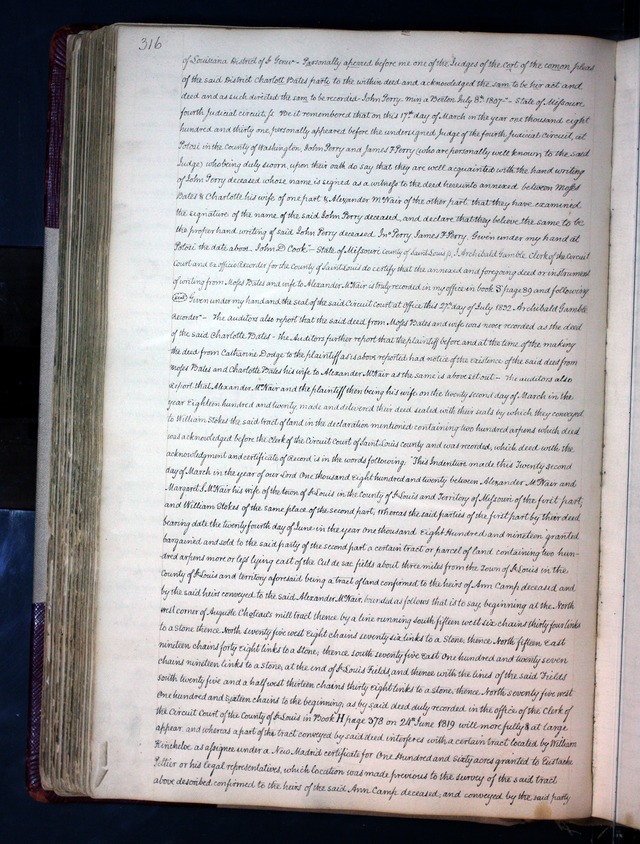 316
of Louisiana District of St Genev - Personally apeared before me one of the Judges of the Cort of the comon pleas
of the said District Charlott Bates party to the within deed and acknowledged the sam to be her act and
deed and as such directed the sam to be recorded - John Perry. Min a Breton July 8th 1807 - State of Missouri
fourth Judicial circuit, ss Be it remembered that on this 17th day of March in the year one thousand eight
hundred and thirty one, personally appeared before the undersigned Judge of the fourth Judicial Circuit, at
Potosi in the County of Washington, John Perry and James F Perry (who are personally well known to the said
Judge) who being duly sworn, upon their oath do say that they are well acquainted with the hand writing
of John Perry deceased whose name is signed as a witness to the deed hereunto annexed between Moses
Bates & Charlotte his wife of one part & Alexander McNair of the other part that they have examined
the signature of the name of the said John Perry deceased, and declare that they believe the same to be
the proper hand writing of said John Perry deceased Jno Perry, James F. Perry. Given under my hand at
Potosi the date above. John D Cook" - State of Missouri County of Saint Louis ss, I, Archibald Gamble, Clerk of the Circuit
Court and ex officio Recorder for the County of Saint Louis do certify that the annexed and foregoing deed or instrument
of writing from Moses Bates and wife to Alexander McNair is truly recorded in my office in book S page 89 and following
Given under my hand and the seal of the said Circuit Court at Office this 27th day of July 1832 Archibald Gamble
Recorder" - The auditors also report that the said deed from Moses Bates and wife was never recorded as the deed
of the said Charlotte Bates - the Auditors further report that the plaintiff before and at the time of the making
the deed from Catharine Dodge to the plaintiff as is above reported had notice of the existence of the said deed from
Moses Bates and Charlotte Bates his wife to Alexander McNair as the same is above set out - The auditors also
report that Alexander McNair and the plaintiff then being his wife on the twenty second day of March in the
year Eighteen hundred and twenty, made and delivered their deed sealed with their seals by which they conveyed
to William Stokes the said tract of land in the declaration mentioned containing two hundred arpens which deed
was acknowledged before the Clerk of the Circuit Court of Saint Louis county and was recorded, which deed with the
acknowledgment and certificate of Record is in the words following. "This Indenture made this Twenty second
day of March in the year of our Lord One thousand Eight hundred and twenty between Alexander McNair and
Margaret S. McNair his wife of the town of St Louis in the County of St Louis and Territory of Missouri of the first part,
and William Stokes of the same place of the second part; whereas the said parties of the first part by their deed
bearing date the twenty fourth day of June in the year One thousand Eight Hundred and nineteen granted
bargained and sold to the said party of the second part a certain tract or parcel of land containing two hun-
dred arpens more or less lying east of the Cul de sac fields about three miles from the Town of St Louis in the
County of St Louis and territory aforesaid being a tract of land confirmed to the heirs of Ann Camp deceased and
by the said heirs conveyed to the said Alexander McNair, bounded as follows that is to say beginning at the North
west corner of Auguste Choteau's mill tract thence by a line running south fifteen west six chains thirty four links
to a stone thence North seventy five west Eight chains seventy six links to a Stone; thence North fifteen East
nineteen chains forty eight links to a stone; thence south seventy five East One hundred and twenty seven
chains nineteen links to a stone, at the end of St Louis Fields, and thence with the lines of the said Fields
south twenty five and a half west thirteen chains thirty eight links to a stone, thence North seventy five west
One hundred and sixteen chains to the beginning, as by said deed duly recorded in the office of the Clerk of
the Circuit Court of the County of St Louis in Book H page 378 on 24th June 1819 will more fully & at large
appear, and whereas a part of the tract conveyed by said deed interferes with a certain tract located by William
Kincheloe as assignee under a New Madrid certificate for One Hundred and sixty acres granted to Eustache
or his legal representatives, which location was made previous to the survey of the said tract
above described confirmed to the heirs of the said Ann Camp deceased, and conveyed by the said party